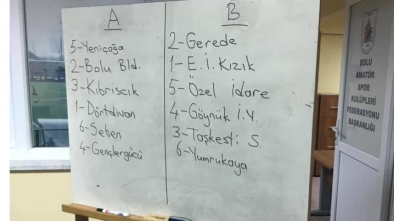 A
5-Yeniçağa
2-Bolu Bld.
3-Kıbrıscık
1-Dörtdivan
6-Seben
4-Gençlergücü
B
2-Gerede
1-E.İ.Kızık
5-Özel İdare
4-Göynük İ.Y.
3-Taşkesti S.
6-Yumrukaya
BOLU
AMATÖR
SPOR
KULÜPLERİ
FEDERASYONU
BAŞKANLIĞI